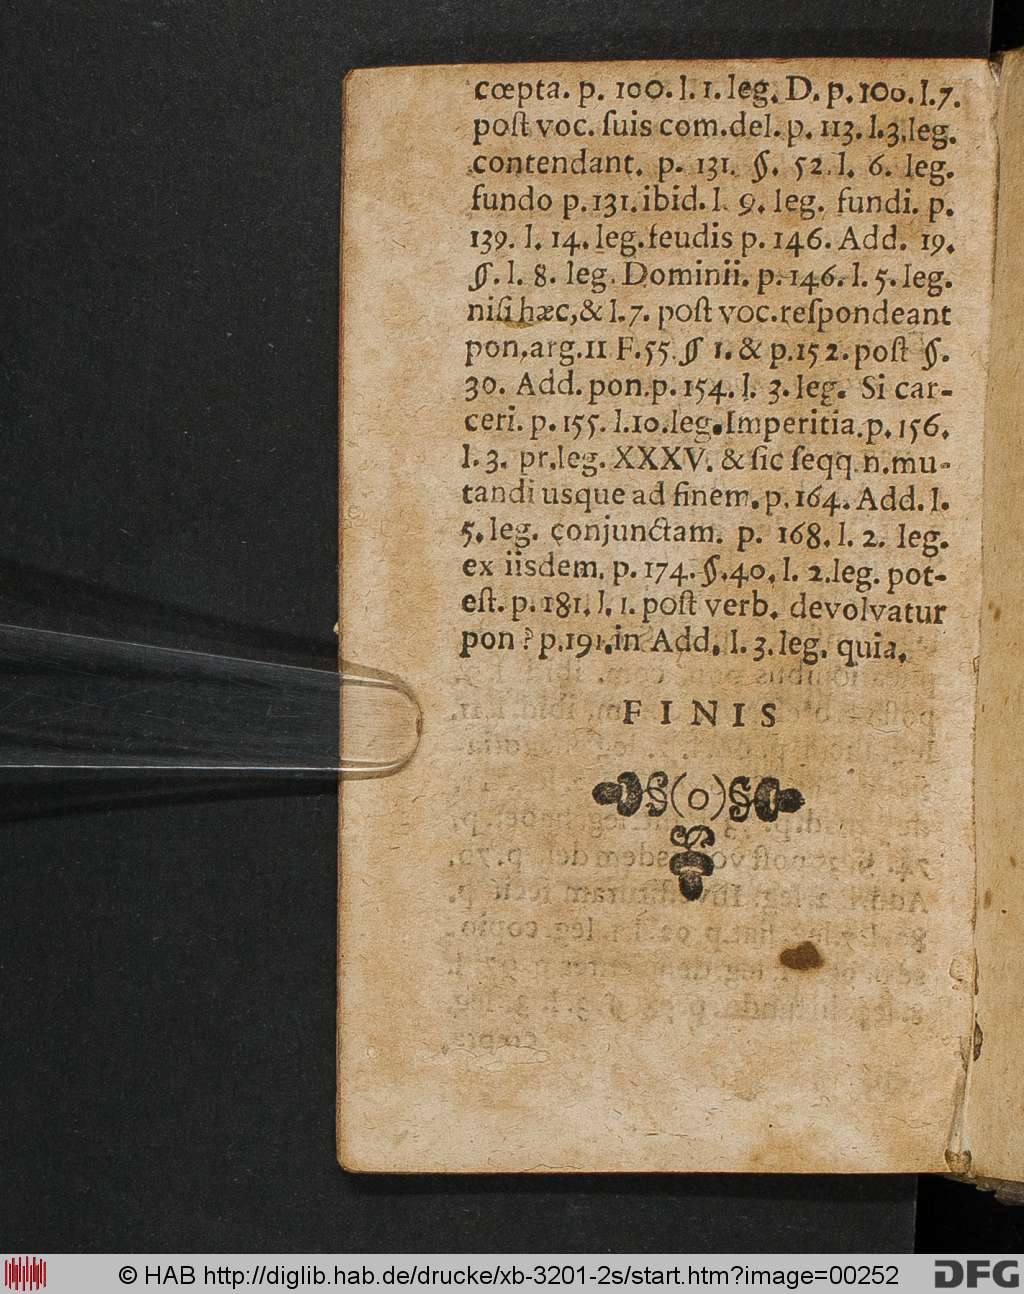 cœpta. p. 100. l. 1. leg. D. p. 100. l. 7.
poſt voc. ſuis com. del. p. 113. l. 3. leg.
contendant. p. 131. §. 52. l. 6. leg.
fundo p. 131. ibid. l. 9. leg. fundi. p.
139. l. 14. leg. feudis p. 146. Add. 19.
§. l. 8. leg. Dominii. p. 146. l. 5. leg.
niſi hæc, & l. 7. poſt voc. reſpondeant
pon. arg. 11 F. 55. § 1. & p. 152. poſt §.
30. Add. pon. p. 154. l. 3. leg. Si car-
ceri. p. 155. l. 10. leg. Imperitia. p. 156.
l. 3. pr. leg. XXXV. & ſic ſeqq. n. mu-
tandi usque ad finem. p. 164. Add. l.
5. leg. conjunctam. p. 168. l. 2. leg.
ex iisdem. p. 174. §. 40. l. 2. leg. pot-
eſt. p. 181. l. 1. poſt verb. devolvatur
pon ? p. 191. in Add. l. 3. leg. quia.
FINIS
§(o)§
© HAB http://diglib.hab.de/drucke/xb-3201-2s/start.htm?image=00252
DFG